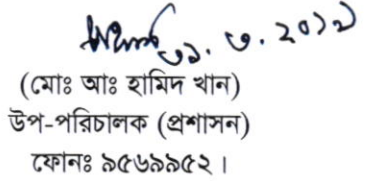 ৩১. ৩. ২০১৯
(মোঃ আঃ হামিদ খান)
উপ-পরিচালক (প্রশাসন)
ফোনঃ ৯৫৬৯৯৫২।